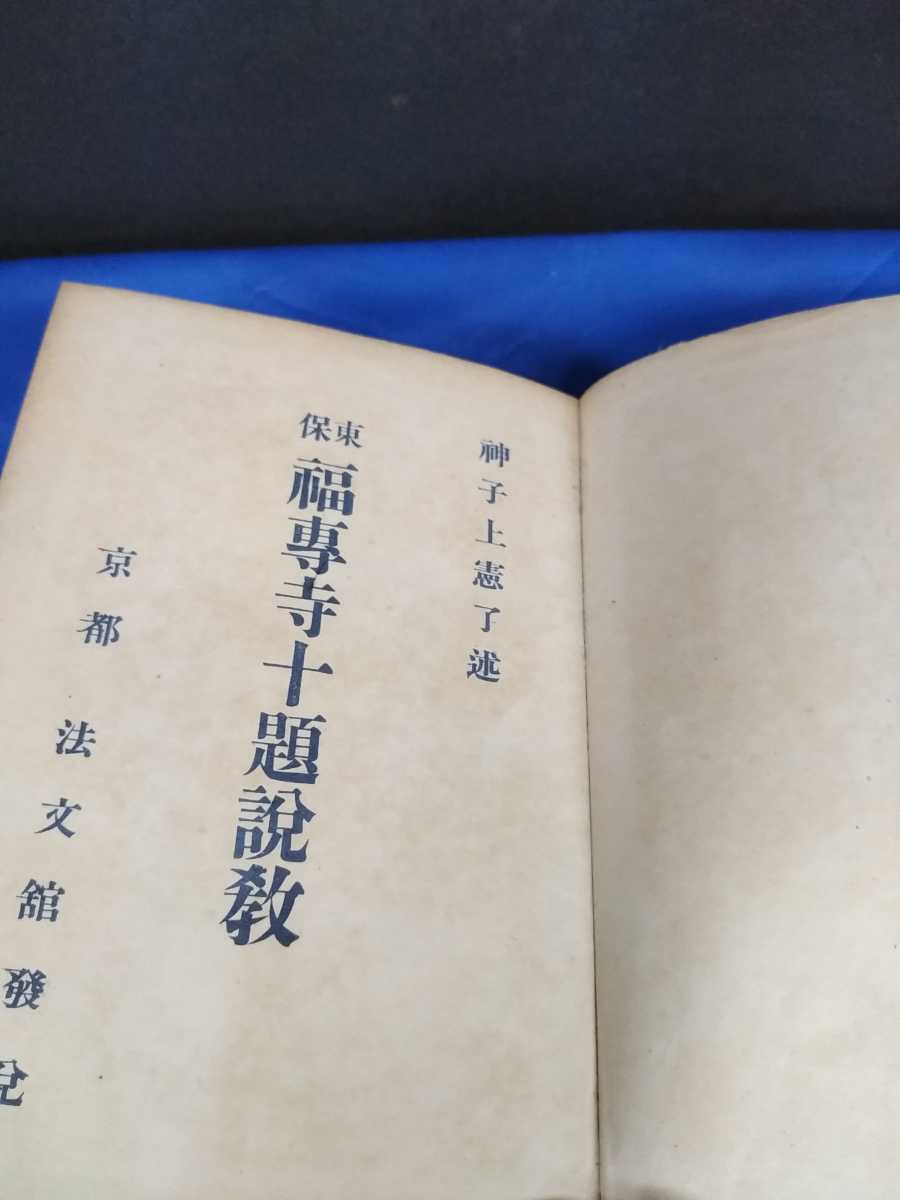 神子上憲了述
東保
福專寺十題說教
京都 法文舘發兌